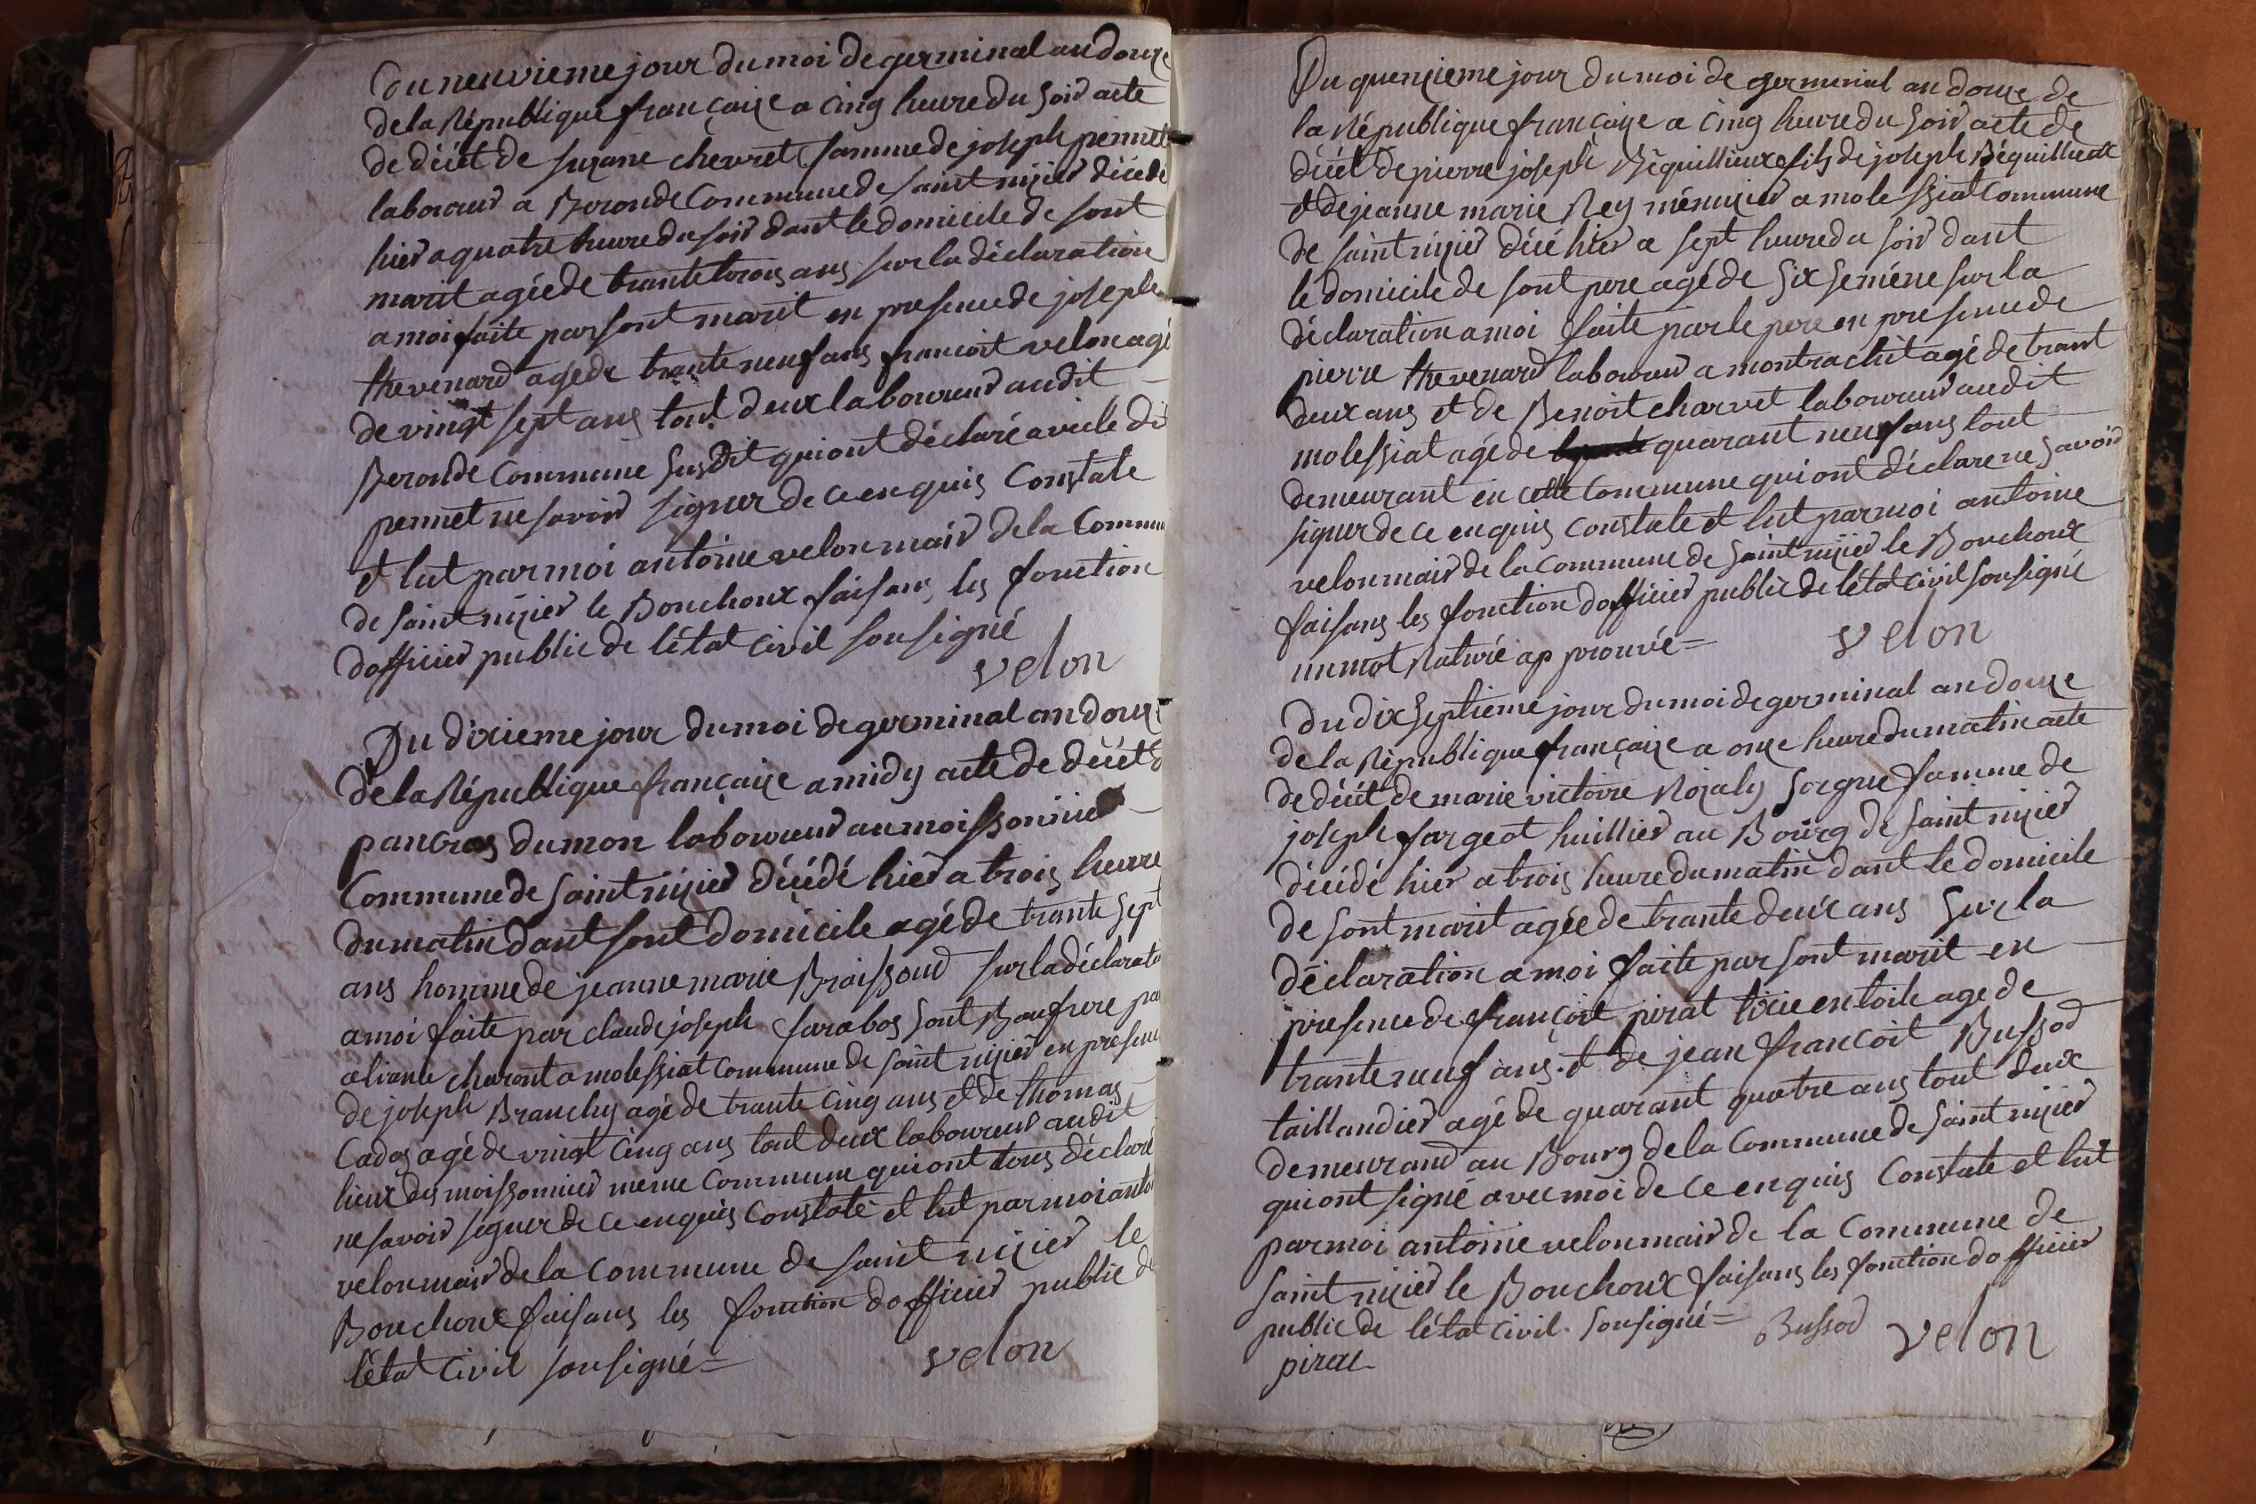 Du neuvieme jour du moi de germinal an douze
de la République françaize a cinq heure du soir acte
de décét de suzane chevret famme de joseph pennet
laboureur a Beronde Commune de saint nizier décédé
hier a quatre heure du soir dant le domicile de sont
marit agée de trante trois ans sur la déclaration
a moi faite par sont marit en presence de joseph
thevenard agé de trante neuf ans francoit velon agé
de vingt sept ans tout deux laboureur audit
Beronde Commune susdit qui ont déclaré avec le dit
pennet ne savoir signer de ce enquis Constate
et lut par moi antoine velon mair de la Commune
de saint nizier le Bouchoux faisans les fonction
dofficier public de létat civil sousigné
velon
Du dixieme jour du moi de germinal an douze
de la République françaize a midy acte de décét d
pancras dumon laboureur au moissonnier
Commune de saint nizier décédé hier a trois heure
du matin dant sont domicile agé de trante sept
ans homme de jeanne marie Braissoud sur la déclarati
a moi faite par claude joseph farabos sont Baufrere pa
aliance charont a molessiat commune de saint nizier en presence
de joseph Branchy agé de trante cinq ans et de thomas
Cados agé de vingt cinq ans tout deux laboureur audit
lieux des moissonnier meme Commune qui ont tous déclaré
ne savoir signer de ce enquis Constaté et lut par moi anto
velon mair de la Commune de saint nizier le
Bouchoux faisans les fonction dofficier public de
létat Civil sousigné =
velon
Du quenzieme jour du moi de germinal an douze de
la République françaize a cinq heure du soir acte de
décét de pierre joseph Béquillieux fils de joseph Béquillieux
et de jeanne marie Rey ménuzier a molessiat Commune
de saint nizier décé hier a sept heure du soir dant
le domicile de sont pere agé de six seméne sur la
déclaration a moi faite par le pere en presence de
pierre thevenard laboureur a montrachit agé de trant
deux ans et de Benoit charvet laboureur audit
molessiat agé de quarant neuf ans tout
demeurant en cette Commune qui ont déclare ne savoir
signer de ce enquis Constate et lut par moi antoine
velon mair de la Commune de saint nizier le Bouchoux
faisans les fonction dofficier public de létat civil sousigné
un mot Raturé ap prouvé =
velon
Du dix septieme jour du moi de germinal an douze
de la République françaize a onze heure du matin acte
de décét de marie victoire Rozaly sorgue famme de
joseph fargeot huillier au Bourg de saint nizier
décédé hier a trois heure du matin dant le domicile
de sont marit agée de trante deux ans sur la
déclaration a moi faite par sont marit en
presence de françoit pirat tixie en toile age de
trante neuf ans. et de jean francoit Bussod
taillandier agé de quarant quatre ans tout deux
demeurand au Bourg de la Commune de saint nizier
qui ont signé avec moi de ce enquis Constate et lut
par moi antoine velon mair de la Commune de
saint nizier le Bouchoux faisans les fonction dofficier
public de létat civil. sousigné =
Bussod
velon
pirat